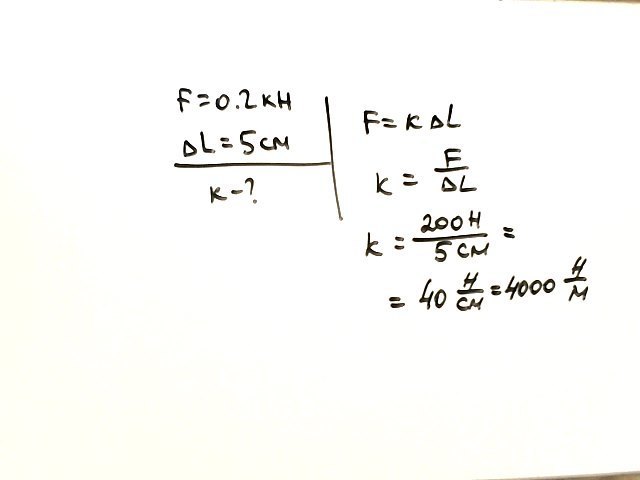 F=0.2кН
ΔL=5см
к-?
F=кΔL
к = F/ΔL
к = 200Н/5см =
= 40 Н/см = 4000 Н/м